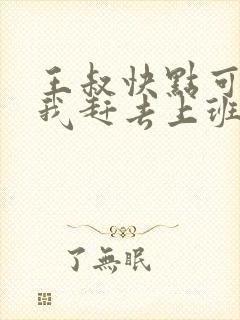 王叔快點可
我赶去上班
了無眠